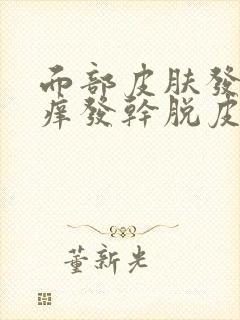 面部皮肤發
痒發幹脱皮
董新光